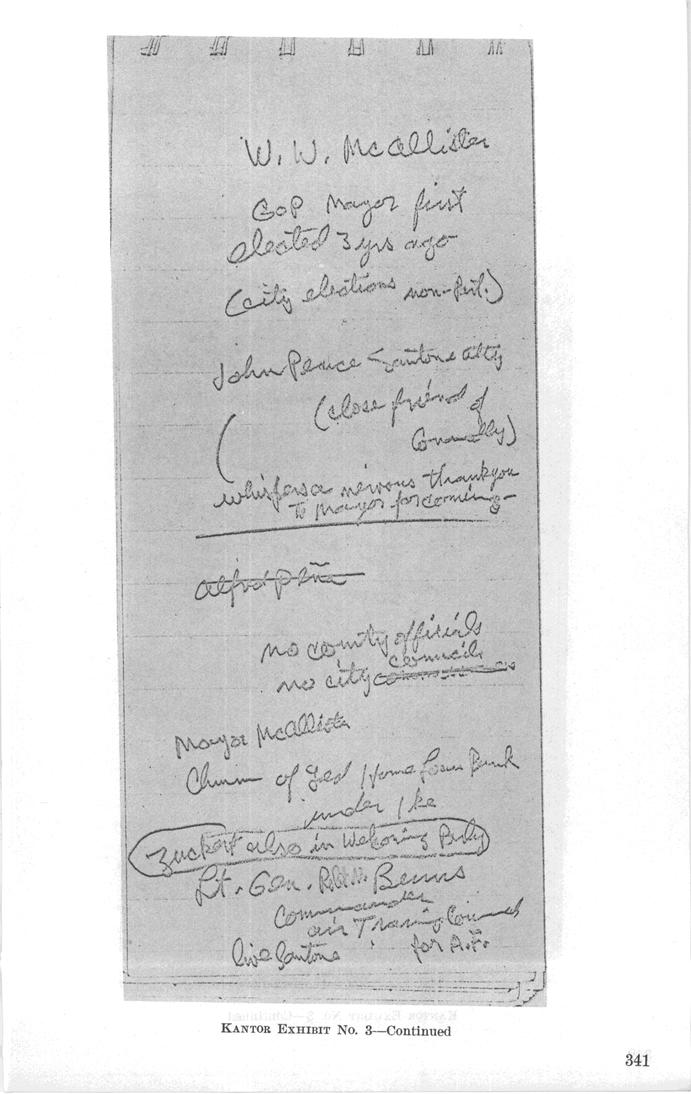 W. W. McAllister
GOP Mayor first
elected 3 yrs ago
(city elections non-part.)
John Peace - Santone atty
(close friend of
Connally)
(
whispers a nervous thankyou
to Mayor for coming -
Alfred Peña
no county officials
no city council
Mayor McAllister
Chmn of Fed Home Loan Bank
under Ike
Zuckert also in Welcoming Party
Lt. Gen. Robt W. Burns
Commander
Air Training Command
for A.F.
live Santone
KANTOR EXHIBIT No. 3—Continued
341